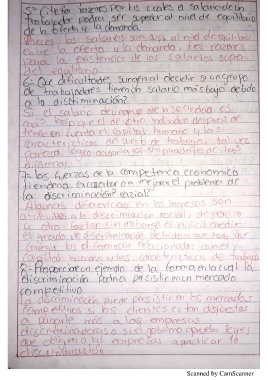 5- Cite tres razones por las cuales el salario de un
trabajador podria ser superior al nivel de equilibrio
de la oferta y la demanda
A veces los salarios son al nivel de equilibrio
entre la oferta y la demanda, tres razones
para la existencia de los salarios
del equilibrio
6- Que dificultades surgen al decidir si un grupo
de trabajadores tiene un salario mas bajo debido
a la discriminación?
Si el salario de un grupo de la sociedad es
mas bajo que el de otro individuo despues de
tener en cuenta el capital humano y las
caracteristicas del puesto de trabajo, tal vez
parezca logico acusar a los empleadores de las
diferencias
7- Las fuerzas de la competencia economica
tienden a exacerbar o a mejorar el problema de
la discriminación racial?
Algunas diferencias en los ingresos son
atribuibles a la discriminación racial,
a otro factor sin embargo es dificil medir
el grado de discriminación debido a que hay que
corregir las diferencias relacionadas con el
Capital humano y las caracteristicas de trabajo
8- Proporcione un ejemplo de la forma en la cual la
discriminación podria persistir en un mercado
competitivo
La discriminación puede persistir en los mercados
competitivos si los clientes estan dispuestos
a pagarle mas a las empresas
discriminadoras o si el gobierno aprueba leyes
que obliguen a las empresas a practicar la
discriminación
Scanned by CamScanner